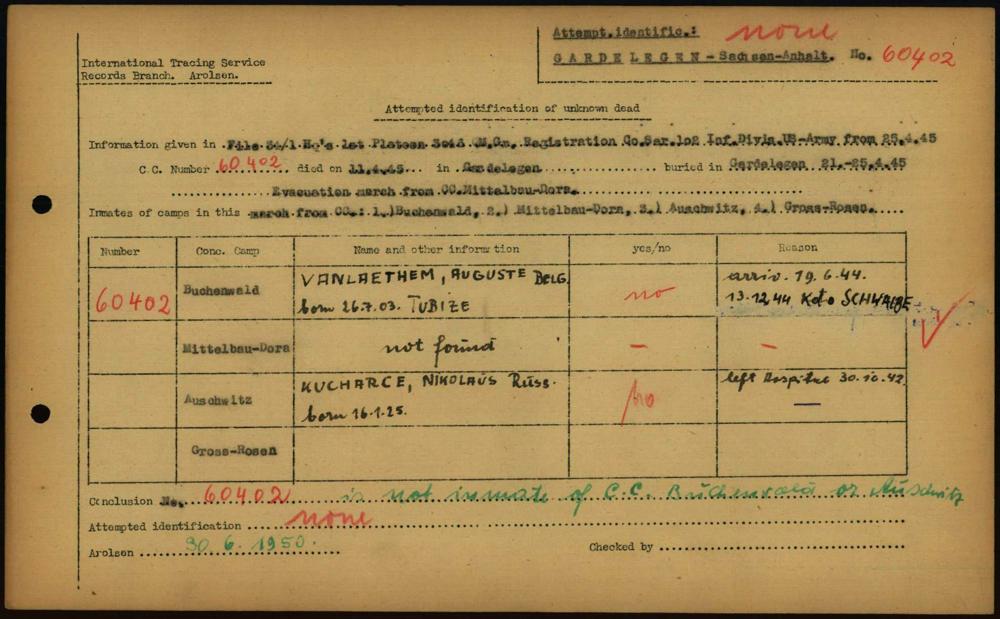 Attempt.identific.: none
International Tracing Service
GARDELEGEN - Sachsen-Anhalt. No. 60402
Records Branch. Arolsen.
Attempted identification of unknown dead
Information given in File 54/1 Hq's 1st Platoon Registration Co. 102 Inf. US-Army from 25.4.45
C.C. Number 60402 died on 11.4.45 in Gardelegen buried in Gardelegen 21.-25.4.45
Evacuation march from CC.Mittelbau-Dora.
Inmates of camps in this march from CC.: 1.)Buchenwald, 2.) Mittelbau-Dora, 3.) Auschwitz, 4.) Gross-Rosen.
Number Conc. Camp Name and other information yes/no Reason
60402 Buchenwald VANLAETHEM, AUGUSTE BELG. no arriv. 19.6.44.
born 26.7.03. TUBIZE 13.12.44 Kdo SCHWALBE
Mittelbau-Dora not found – –
Auschwitz KUCHARCE, NIKOLAUS Russ. no left Hospital 30.10.42
born 16.1.25. —
Gross-Rosen
Conclusion No. 60402 is not inmate of C.C. Buchenwald or Auschwitz
Attempted identification none
Arolsen 30.6.1950. Checked by